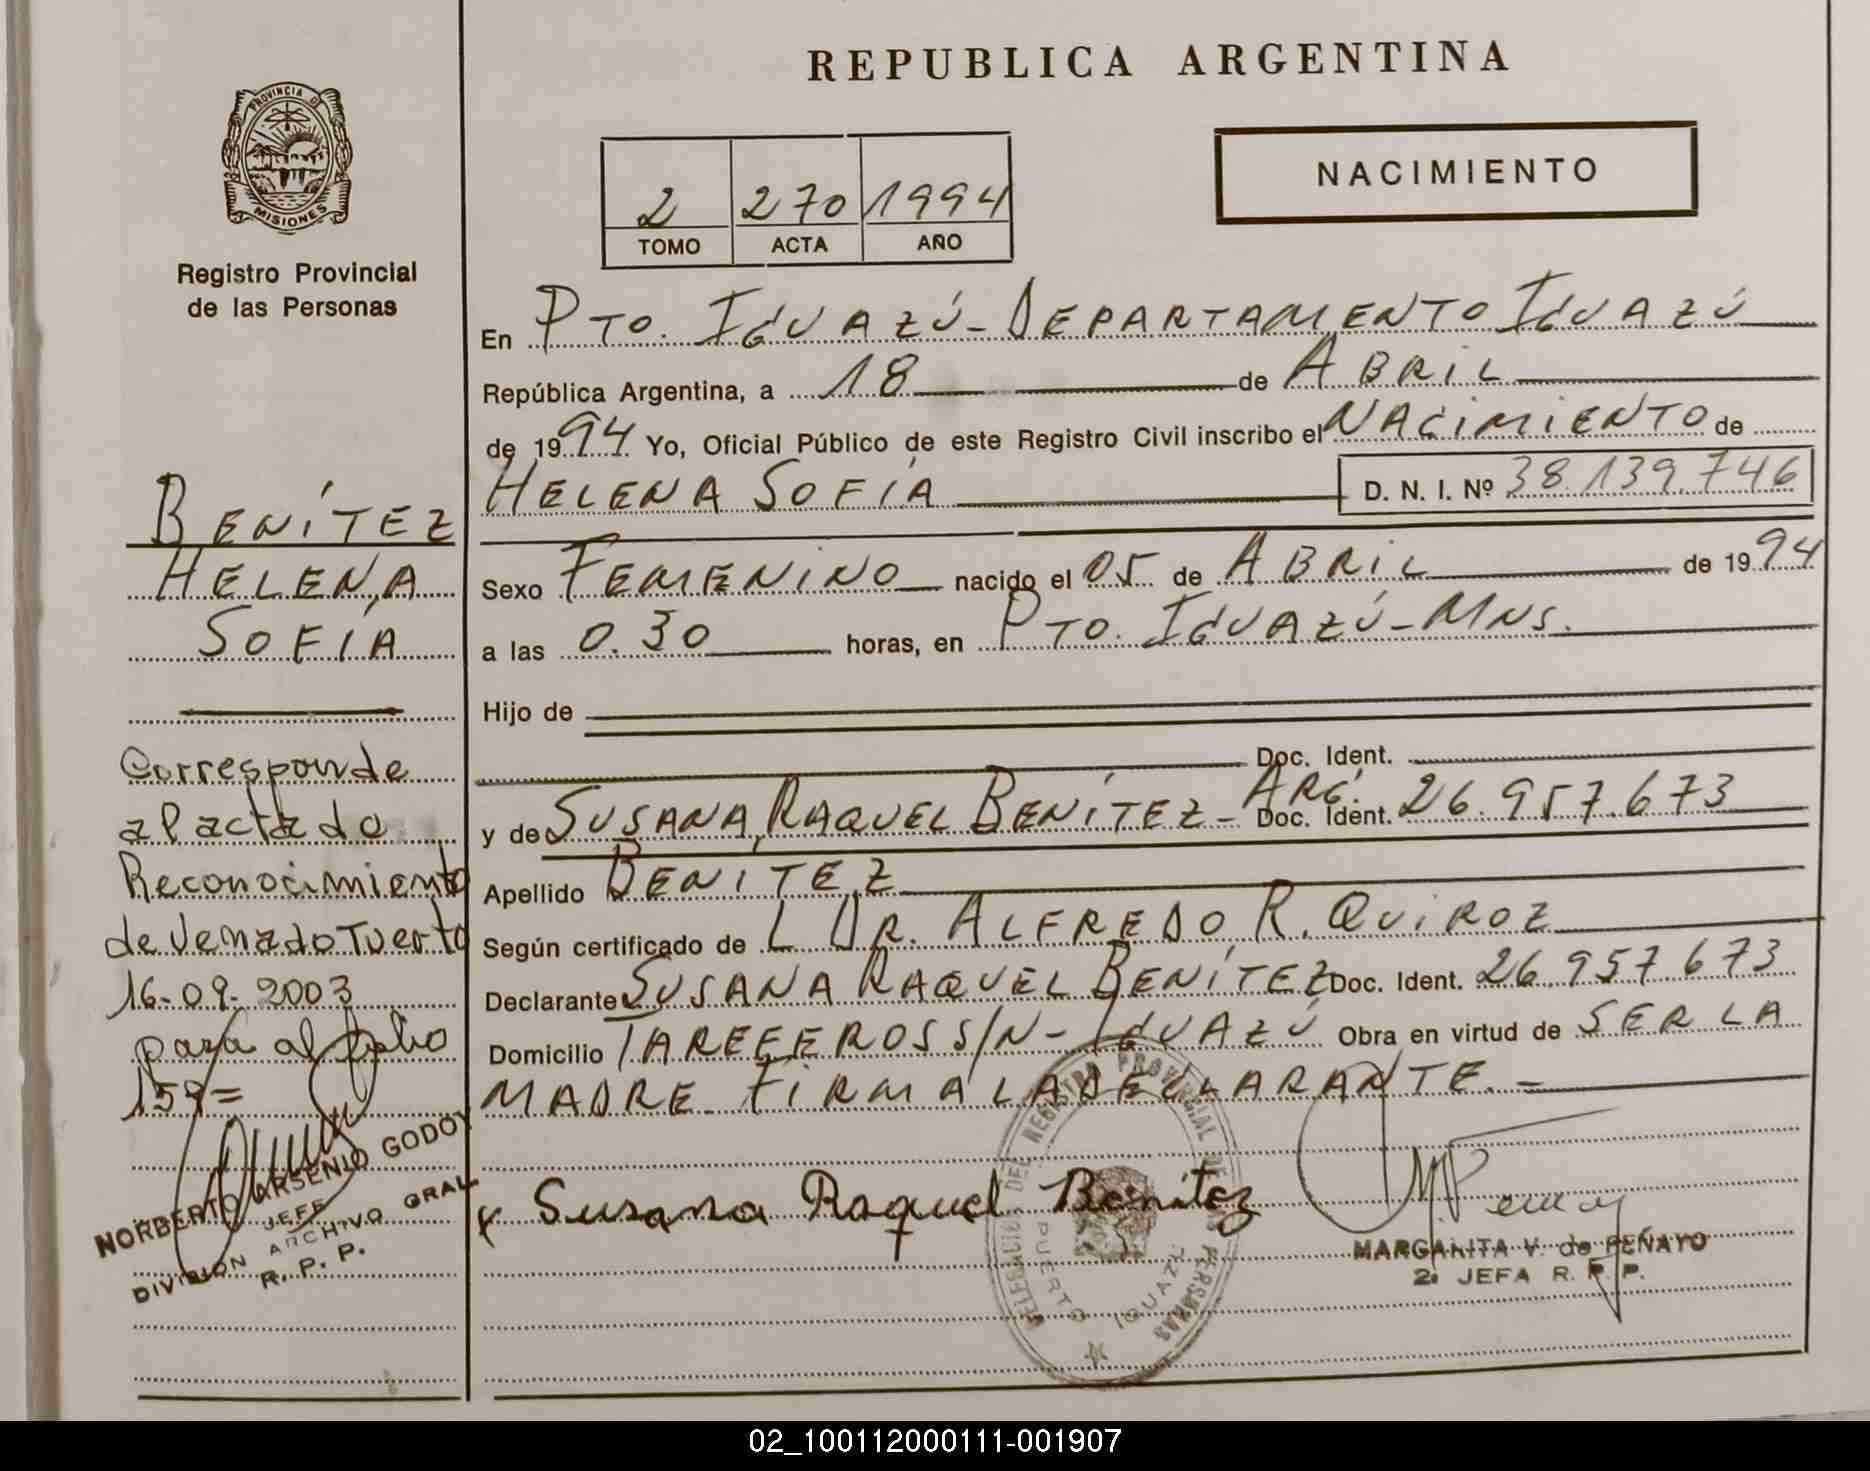 REPUBLICA ARGENTINA
PROVINCIA DE
MISIONES
Registro Provincial
de las Personas
NACIMIENTO
2 270 1994
TOMO ACTA AÑO
En PTO. IGUAZÚ - DEPARTAMENTO IGUAZÚ
República Argentina, a 18 de ABRIL
de 1994 Yo, Oficial Público de este Registro Civil inscribo el NACIMIENTO de
HELENA SOFÍA D. N. I. Nº 38.139.746
Sexo FEMENINO nacido el 05 de ABRIL de 1994
a las 0.30 horas, en PTO. IGUAZÚ - MNS.
Hijo de
Doc. Ident.
y de SUSANA RAQUEL BENÍTEZ - ARG. Doc. Ident. 26.957.673
Apellido BENÍTEZ
Según certificado de L DR. ALFREDO R. QUIROZ
Declarante SUSANA RAQUEL BENÍTEZ Doc. Ident. 26.957.673
Domicilio TAREFEROS S/N - IGUAZÚ Obra en virtud de SER LA
MADRE. FIRMA LA DECLARANTE. -
Susana Raquel Benítez
DELEGACIÓN DEL REGISTRO PROVINCIAL DE PERSONAS
PUERTO IGUAZÚ
MARGARITA V. de PEÑAYO
2ª JEFA R. P. P.
BENÍTEZ
HELENA
SOFÍA
Corresponde
al acta de
Reconocimiento
de Venado Tuerto
16-09-2003
pasa al folio
159=
NORBERTO ARSENIO GODOY
JEFE
DIVISION ARCHIVO GRAL
R. P. P.
02_100112000111-001907